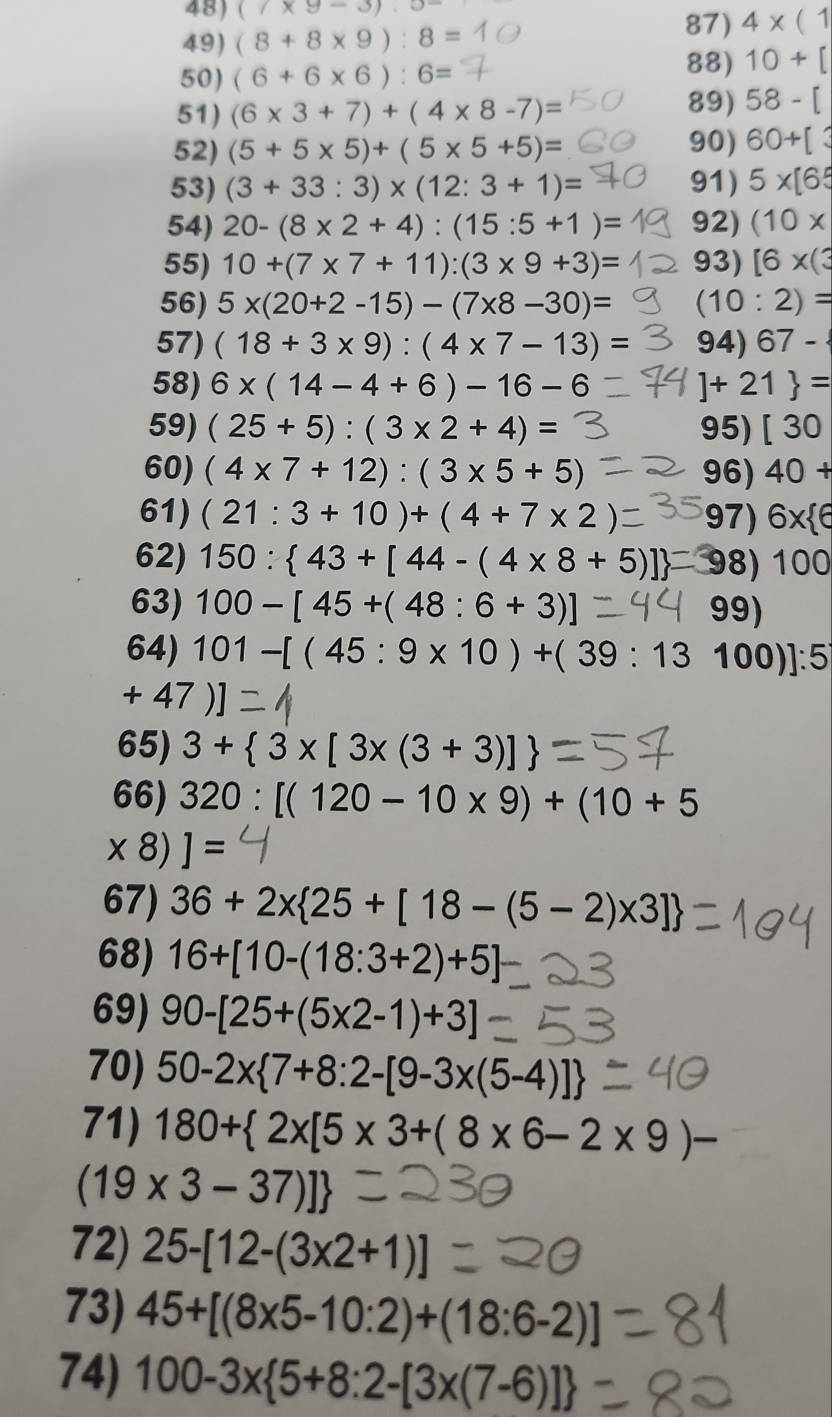 49) ( 8 + 8 × 9 ) : 8 = 10
50) ( 6 + 6 × 6 ) : 6= 7
51) (6 × 3 + 7) + ( 4 × 8 -7)= 50
52) (5 + 5 × 5)+ ( 5 × 5 +5)= 60
53) (3 + 33 : 3) × (12: 3 + 1)= 70
54) 20- (8 × 2 + 4) : (15 :5 +1 )= 19
55) 10 +(7 × 7 + 11):(3 × 9 +3)= 12
56) 5 ×(20+2 -15) – (7x8 –30)= 9
57) ( 18 + 3 × 9) : ( 4 × 7 – 13) = 3
58) 6 × ( 14 – 4 + 6 ) – 16 – 6 = 74
59) ( 25 + 5) : ( 3 × 2 + 4) = 3
60) ( 4 × 7 + 12) : ( 3 × 5 + 5) = 2
61) ( 21 : 3 + 10 )+ ( 4 + 7 × 2 ) = 35
62) 150 : { 43 + [ 44 - ( 4 × 8 + 5)]} = 3
63) 100 – [ 45 +( 48 : 6 + 3)] = 44
64) 101 –[ ( 45 : 9 × 10 ) +( 39 : 13
+ 47 )] = 1
65) 3 + { 3 × [ 3x (3 + 3)] } = 57
66) 320 : [( 120 – 10 × 9) + (10 + 5
× 8) ] = 4
67) 36 + 2x{25 + [ 18 – (5 – 2)x3]} = 104
68) 16+[10-(18:3+2)+5] = 23
69) 90-[25+(5x2-1)+3] = 53
70) 50-2x{7+8:2-[9-3x(5-4)]} = 40
71) 180+{ 2x[5 × 3+( 8 × 6– 2 × 9 )–
(19 × 3 – 37)]} = 230
72) 25-[12-(3x2+1)] = 20
73) 45+[(8x5-10:2)+(18:6-2)] = 81
74) 100-3x{5+8:2-[3x(7-6)]} = 82
87) 4 × ( 1
88) 10 + [
89) 58 - [
90) 60+[
91) 5 x[65
92) (10 ×
93) [6 ×(3
(10 : 2) =
94) 67 -
]+ 21 } =
95) [ 30
96) 40 +
97) 6x{6
98) 100
99)
100)]:5